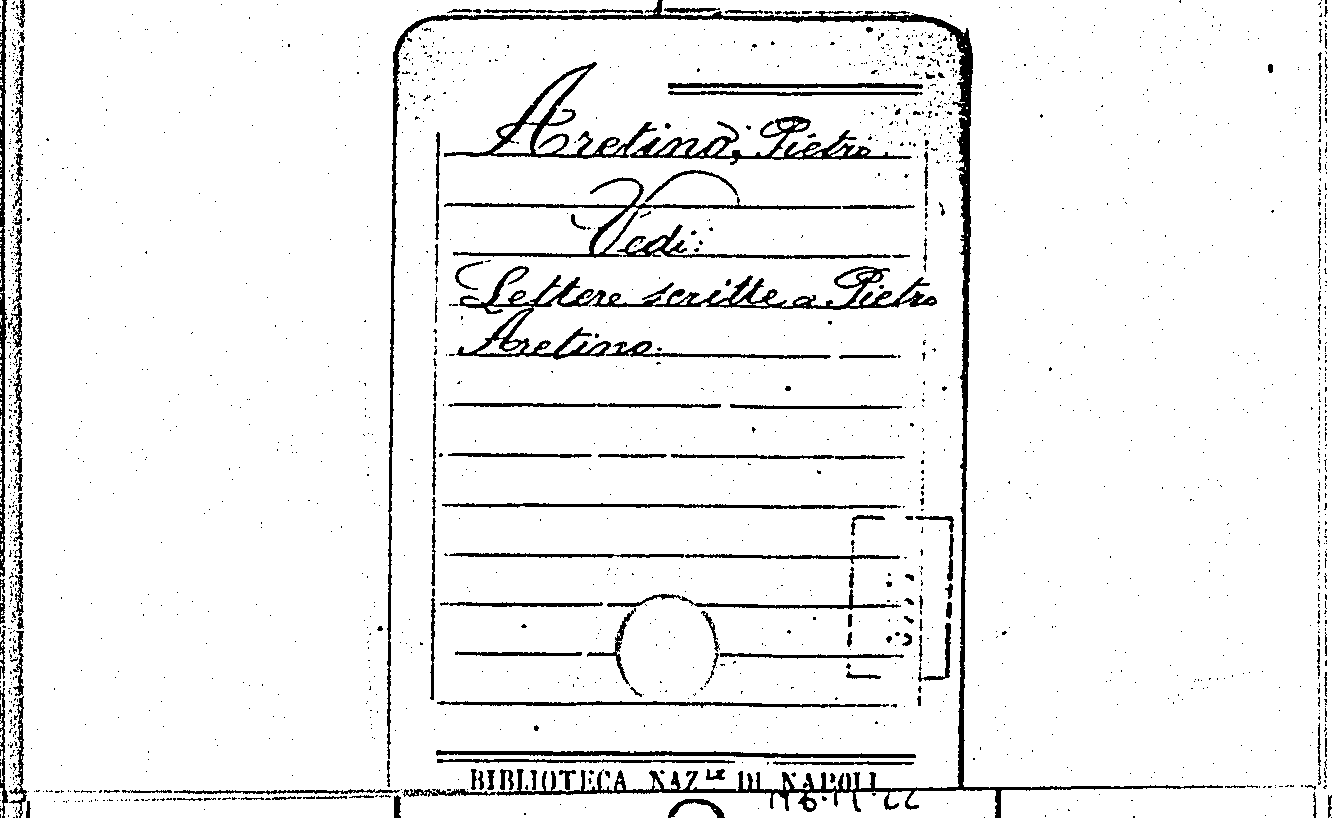 Aretino, Pietro.
Vedi:
Lettere scritte a Pietro
Aretino.
BIBLIOTECA NAZ.LE DI NAPOLI